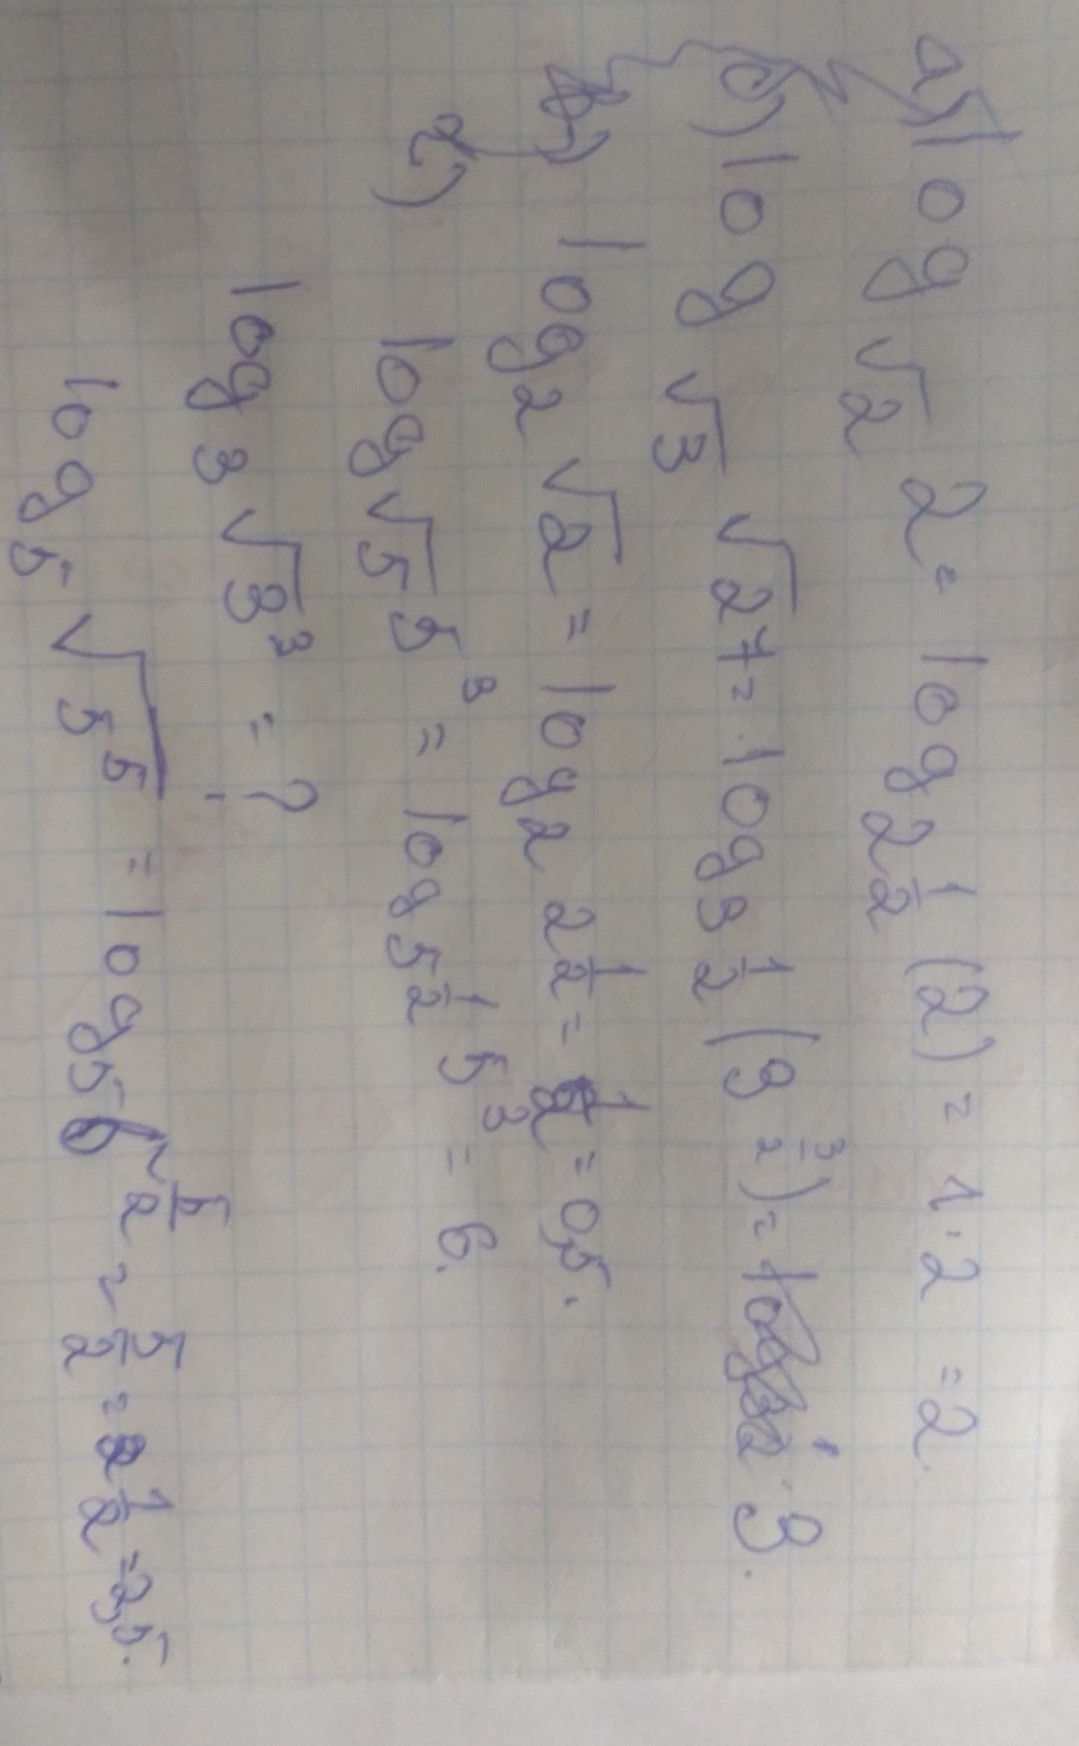 а) log √2 2 = log 2 1/2 (2) = 1·2 = 2
б) log √3 √27 = log 3 1/2 (3 3/2) = 3.
log 2 √2 = log 2 2 1/2 = 1/2 = 0,5.
г) log √5 5³ = log 5 1/2 5³ = 6.
log 3 √3³ = ?
log 5 √5⁵ = log 5 5/2 = 5/2 = 2 1/2 = 2,5.